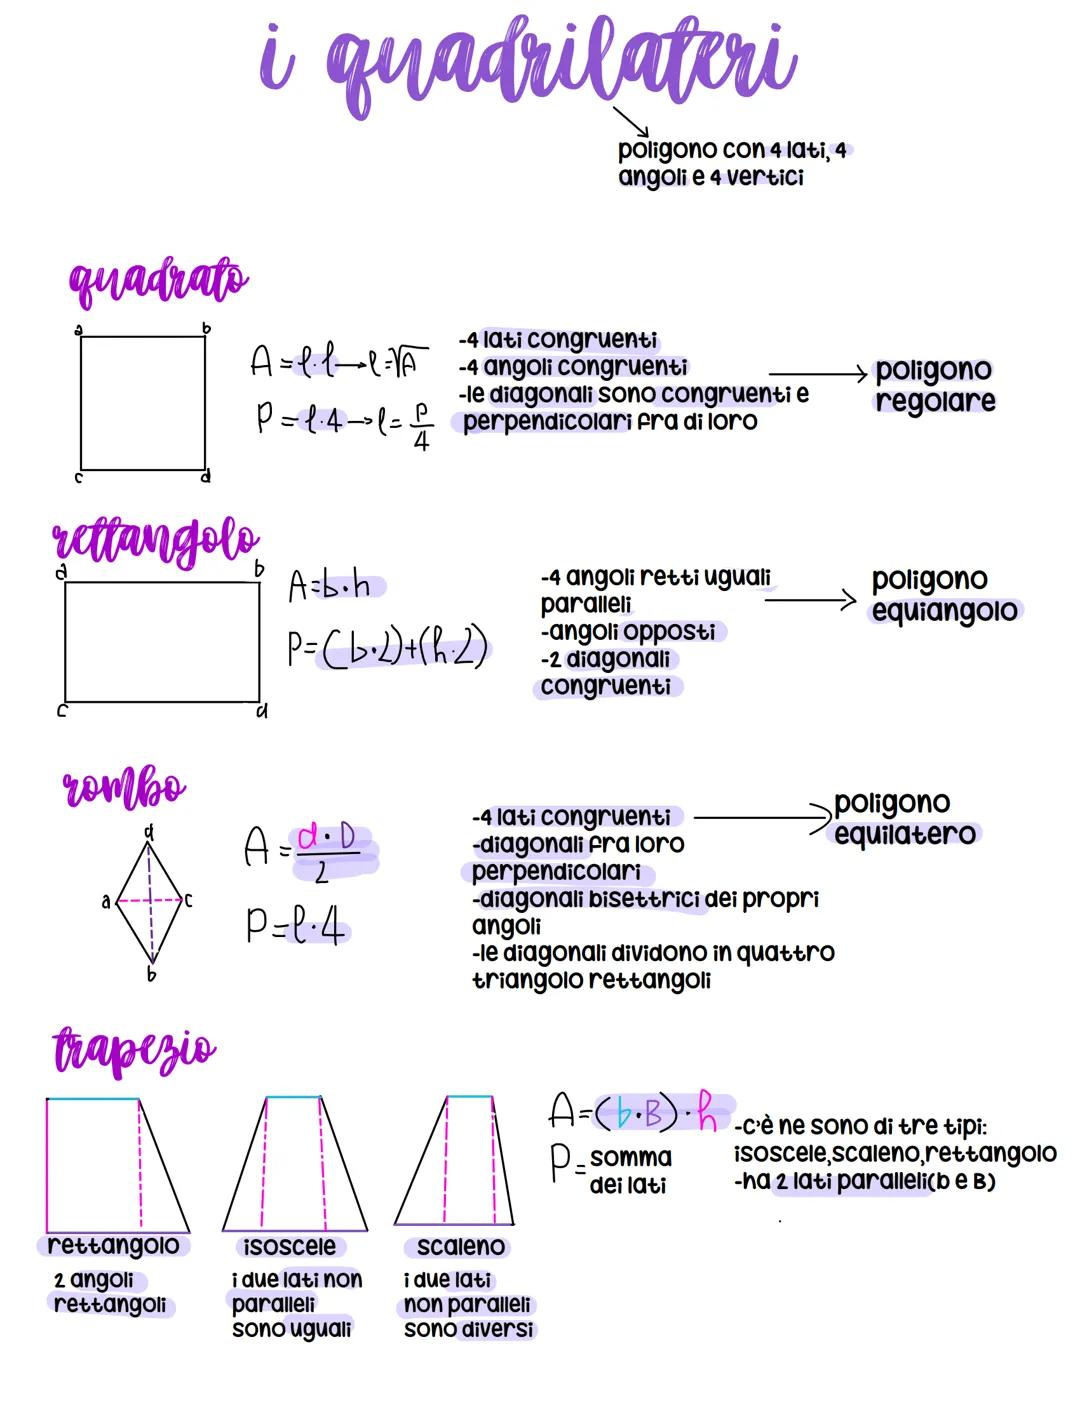 i quadrilateri
poligono con 4 lati, 4
angoli e 4 vertici
quadrato
a b
c d
A = l·l → l = √A
P = l·4 → l = P/4
-4 lati congruenti
-4 angoli congruenti
-le diagonali sono congruenti e
perpendicolari fra di loro
poligono
regolare
rettangolo
a b
c d
A=b·h
P=(b·2)+(h·2)
-4 angoli retti uguali
paralleli
-angoli opposti
-2 diagonali
congruenti
poligono
equiangolo
rombo
d
a c
b
A = d·D/2
P=l·4
-4 lati congruenti
-diagonali fra loro
perpendicolari
-diagonali bisettrici dei propri
angoli
-le diagonali dividono in quattro
triangolo rettangoli
poligono
equilatero
trapezio
A=(b·B)·h
P= somma
dei lati
-c'è ne sono di tre tipi:
isoscele,scaleno,rettangolo
-ha 2 lati paralleli(b e B)
rettangolo
2 angoli
rettangoli
isoscele
i due lati non
paralleli
sono uguali
scaleno
i due lati
non paralleli
sono diversi